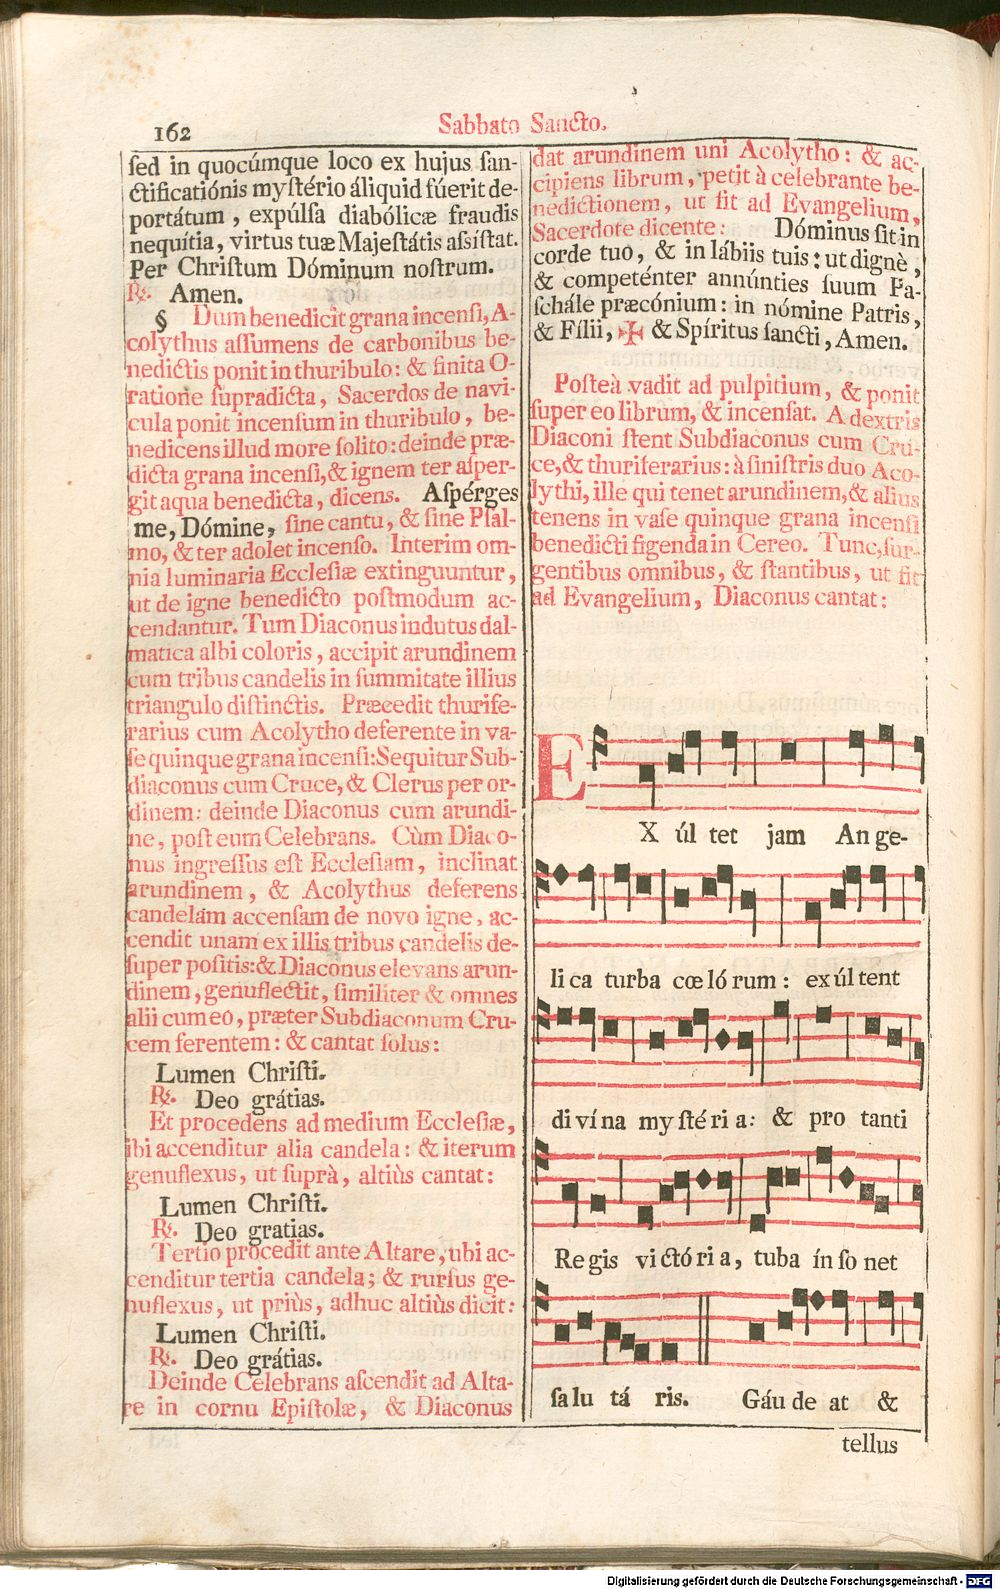 162
Sabbato Sancto.
ſed in quocúmque loco ex hujus ſan-
ctificatiónis myſtério áliquid fúerit de-
portátum , expúlſa diabólicæ fraudis
nequítia, virtus tuæ Majeſtátis aſsíſtat.
Per Chriſtum Dóminum noſtrum.
℟. Amen.
§ Dum benedicit grana incenſi, A-
colythus aſſumens de carbonibus be-
nedictis ponit in thuribulo: & finita O-
ratione ſupradicta, Sacerdos de navi-
cula ponit incenſum in thuribulo, be-
nedicens illud more ſolito: deinde præ-
dicta grana incenſi, & ignem ter aſper-
git aqua benedicta, dicens. Aſpérges
me, Dómine, ſine cantu, & ſine Pſal-
mo, & ter adolet incenſo. Interim om-
nia luminaria Eccleſiæ extinguuntur,
ut de igne benedicto poſtmodum ac-
cendantur. Tum Diaconus indutus dal-
matica albi coloris, accipit arundinem
cum tribus candelis in ſummitate illius
triangulo diſtinctis. Præcedit thurife-
rarius cum Acolytho deferente in va-
ſe quinque grana incenſi: Sequitur Sub-
diaconus cum Cruce, & Clerus per or-
dinem: deinde Diaconus cum arundi-
ne, poſt eum Celebrans. Cùm Diaco-
nus ingreſſus eſt Eccleſiam, inclinat
arundinem, & Acolythus deferens
candelam accenſam de novo igne, ac-
cendit unam ex illis tribus candelis de-
ſuper poſitis: & Diaconus elevans arun-
dinem, genuflectit, ſimiliter & omnes
alii cum eo, præter Subdiaconum Cru-
cem ferentem: & cantat ſolus:
Lumen Chriſti.
℟. Deo grátias.
Et procedens ad medium Eccleſiæ,
ibi accenditur alia candela: & iterum
genuflexus, ut ſuprà, altiùs cantat:
Lumen Chriſti.
℟. Deo gratias.
Tertio procedit ante Altare, ubi ac-
cenditur tertia candela; & rurſus ge-
nuflexus, ut priùs, adhuc altiùs dicit:
Lumen Chriſti.
℟. Deo grátias.
Deinde Celebrans aſcendit ad Alta-
re in cornu Epiſtolæ, & Diaconus
dat arundinem uni Acolytho: & ac-
cipiens librum, petit à celebrante be-
nedictionem, ut fit ad Evangelium,
Sacerdote dicente: Dóminus ſit in
corde tuo, & in lábiis tuis: ut dignè,
& competénter annúnties ſuum Pa-
ſchále præcónium: in nómine Patris,
& Fílii, ✠ & Spíritus ſancti, Amen.
Poſteà vadit ad pulpitium, & ponit
ſuper eo librum, & incenſat. A dextris
Diaconi ſtent Subdiaconus cum Cru-
ce, & thuriferarius: à ſiniſtris duo Aco-
lythi, ille qui tenet arundinem, & alius
tenens in vaſe quinque grana incenſi
benedicti figenda in Cereo. Tunc, ſur-
gentibus omnibus, & ſtantibus, ut fit
ad Evangelium, Diaconus cantat:
E
X úl tet jam An ge-
li ca turba cœ ló rum : ex úl tent
di ví na my ſté ri a: & pro tanti
Re gis vi ctó ri a, tuba ín ſo net
ſa lu tá ris. Gáu de at &
tellus
Digitalisierung gefördert durch die Deutsche Forschungsgemeinschaft - DFG